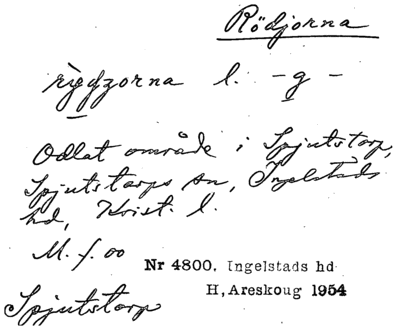 Rödjorna
rigdzorna l. -g-
Odlat område i Spjutstorp,
Spjutstorps sn, Ingelstads
hd, Krist. l.
M. f. oo
Nr 4800. Ingelstads hd
H, Areskoug 1954
Spjutstorp